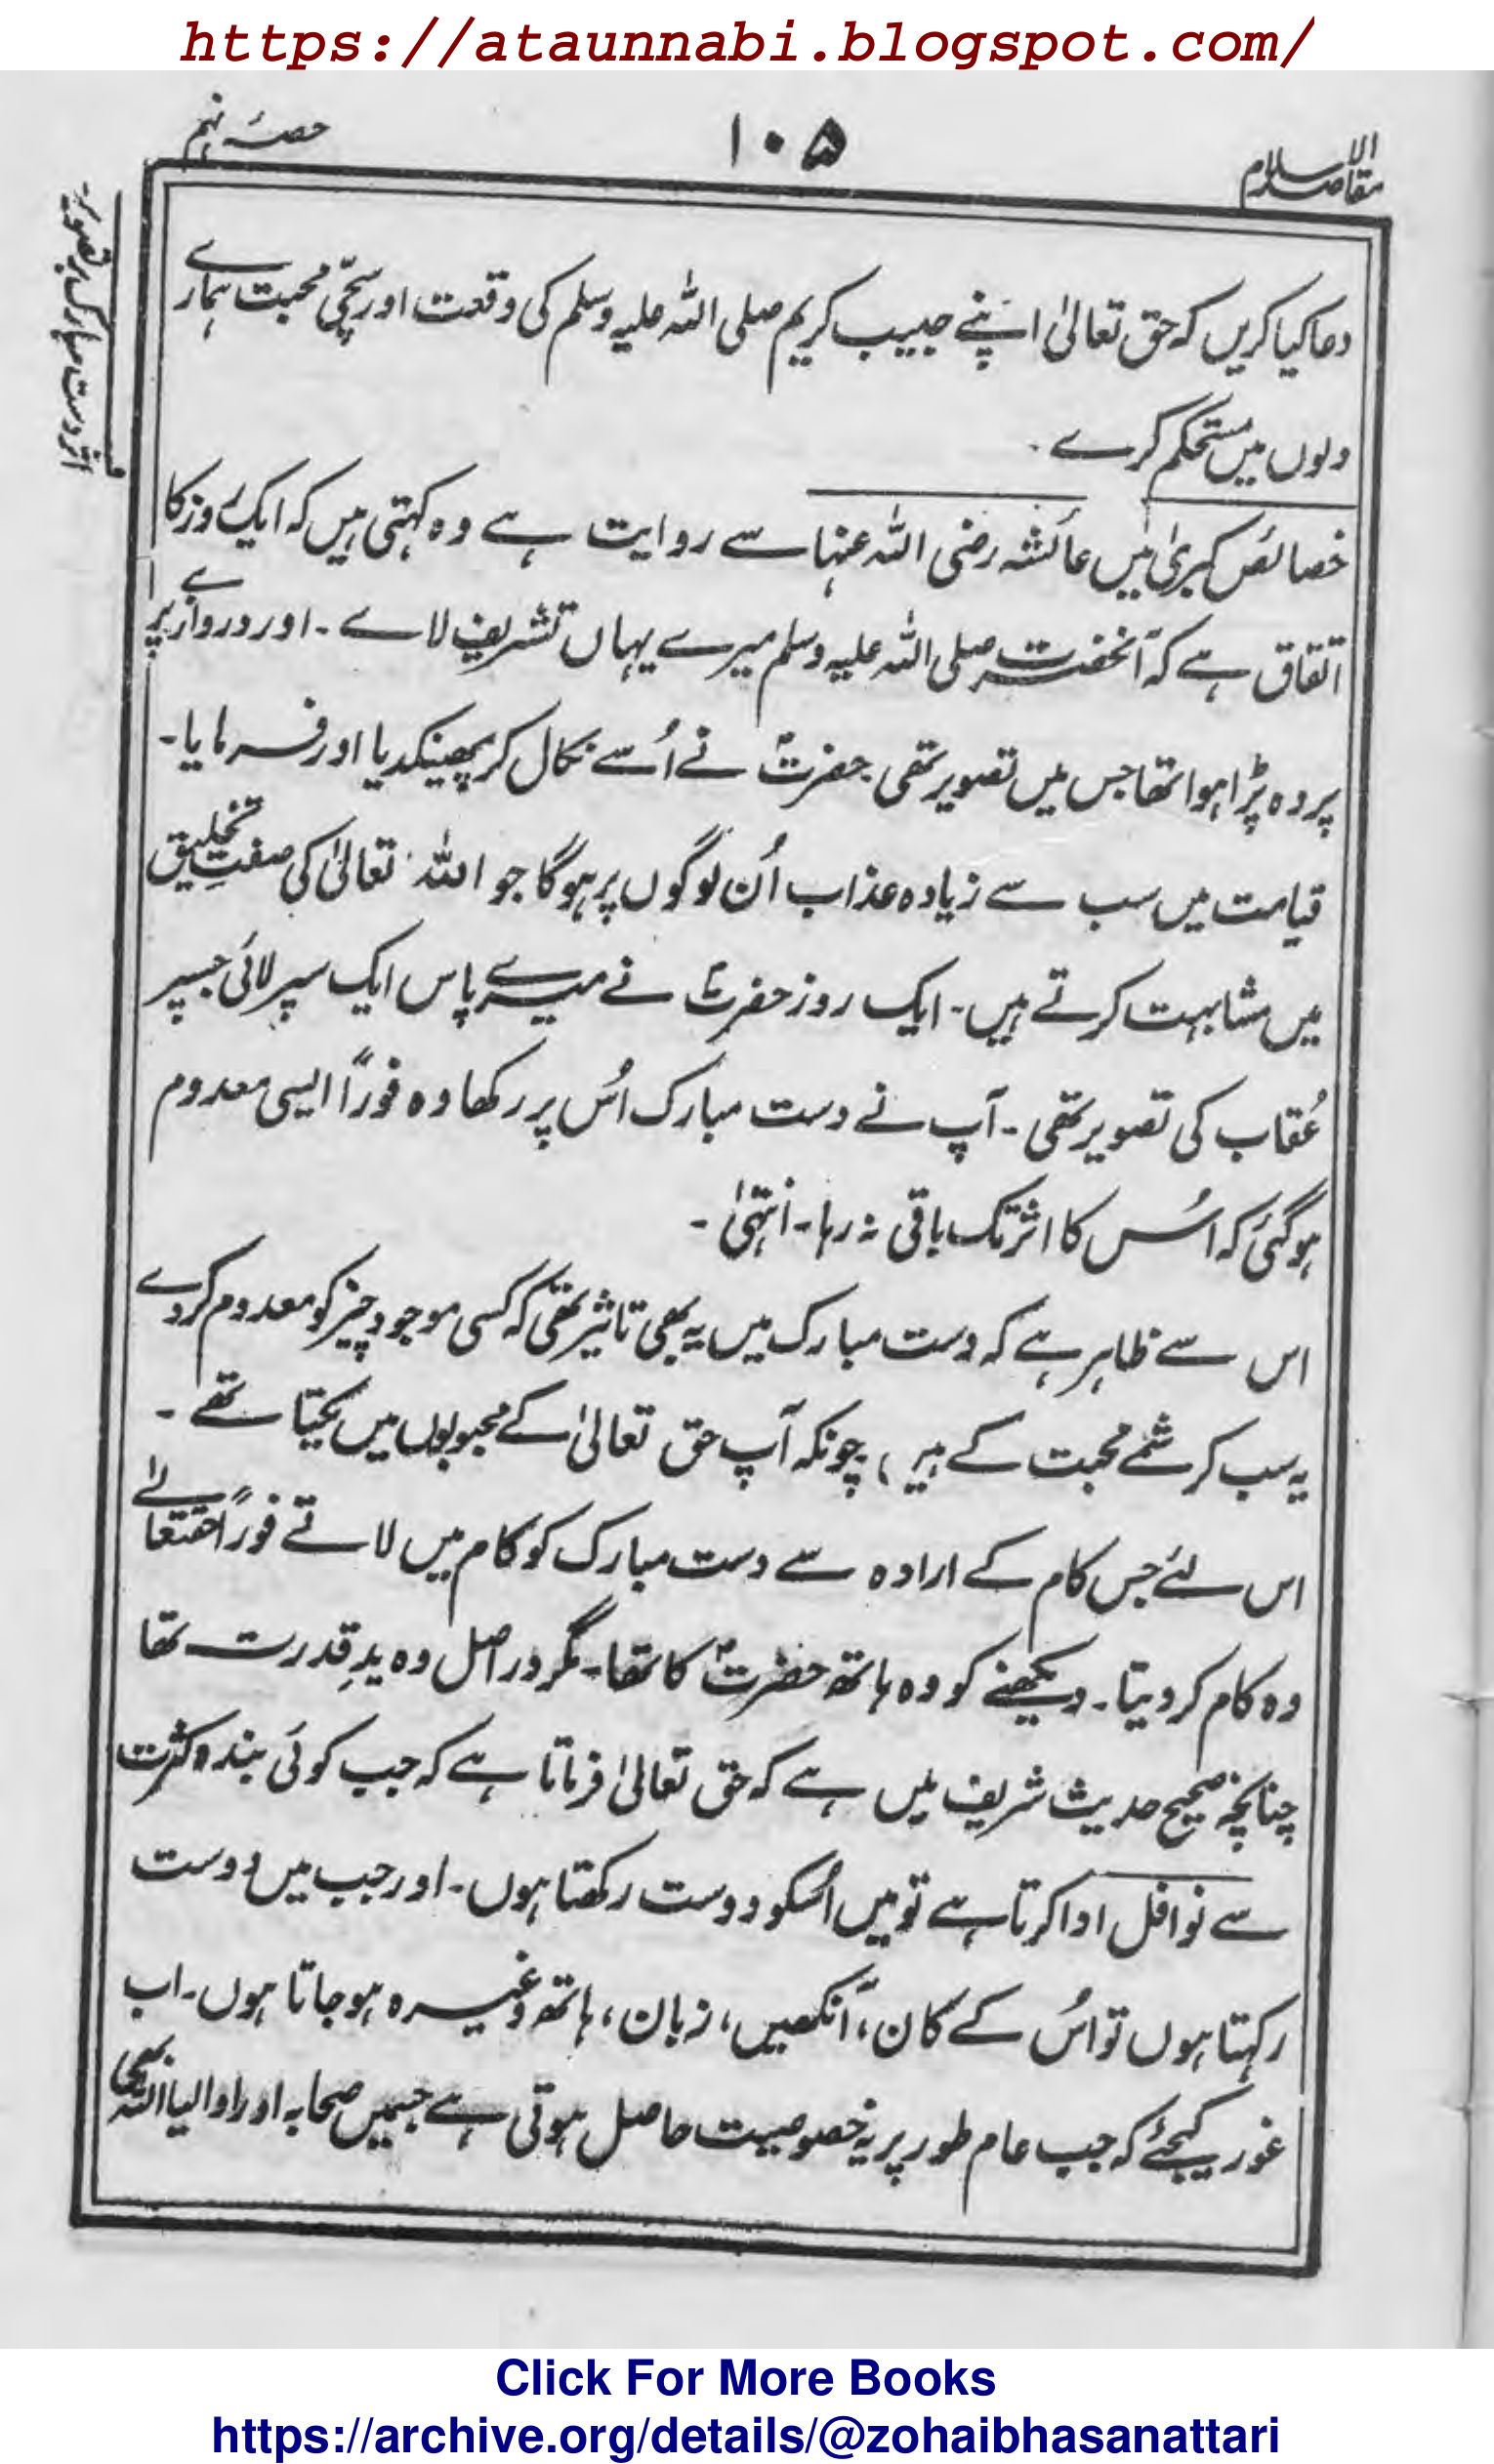 https://ataunnabi.blogspot.com/
مقاصد الاسلام
۱۰۵
حصۂ نہم
اثر دست مبارک بر تصویر۔
دعا کیا کریں کہ حق تعالیٰ اپنے حبیب کریم صلی اللہ علیہ وسلم کی وقعت اور سچّی محبت ہمارے
دلوں میں مستحکم کرے۔
خصائص کبریٰ میں عائشہ رضی اللہ عنہا سے روایت ہے وہ کہتی ہیں کہ ایک روز کا
اتفاق ہے کہ آنحضرت صلی اللہ علیہ وسلم میرے یہاں تشریف لاے۔ اور دروازے پر
پردہ پڑا ہوا تھا جس میں تصویر تھی حضرتؐ نے اُسے نکال کر پھینکدیا اور فرمایا۔
قیامت میں سب سے زیادہ عذاب اُن لوگوں پر ہوگا جو اللہ تعالیٰ کی صفتِ تخلیق
میں مشابہت کرتے ہیں۔ ایک روز حضرتؐ نے میرے پاس ایک سپر لائی جسپر
عُقاب کی تصویر تھی۔ آپ نے دست مبارک اُس پر رکھا وہ فوراً ایسی معدوم
ہوگئی کہ اُس کا اثر تک باقی نہ رہا۔ انتہیٰ۔
اس سے ظاہر ہے کہ دست مبارک میں یہ بھی تاثیر تھی کہ کسی موجود چیز کو معدوم کردے
یہ سب کرشمے محبت کے ہیں، چونکہ آپ حق تعالیٰ کے محبوبوں میں یکتا تھے۔
اس لئے جس کام کے ارادہ سے دست مبارک کو کام میں لاتے فوراً حقتعالےٰ
وہ کام کردیتا۔ دیکھنے کو وہ ہاتھ حضرتؐ کا تھا۔ مگر دراصل وہ یدِ قدرت تھا
چنانچہ صحیح حدیث شریف میں ہے کہ حق تعالیٰ فرماتا ہے کہ جب کوئی بندہ کثرت
سے نوافل ادا کرتا ہے تو میں اُسکو دوست رکھتا ہوں۔ اور جب میں دوست
رکہتا ہوں تو اُس کے کان، آنکھیں، زبان، ہاتھ وغیرہ ہوجاتا ہوں۔ اب
غور کیجئے کہ جب عام طور پر یہ خصوصیت حاصل ہوتی ہے جسمیں صحابہ اور اولیاء اللہ بھی
Click For More Books
https://archive.org/details/@zohaibhasanattari